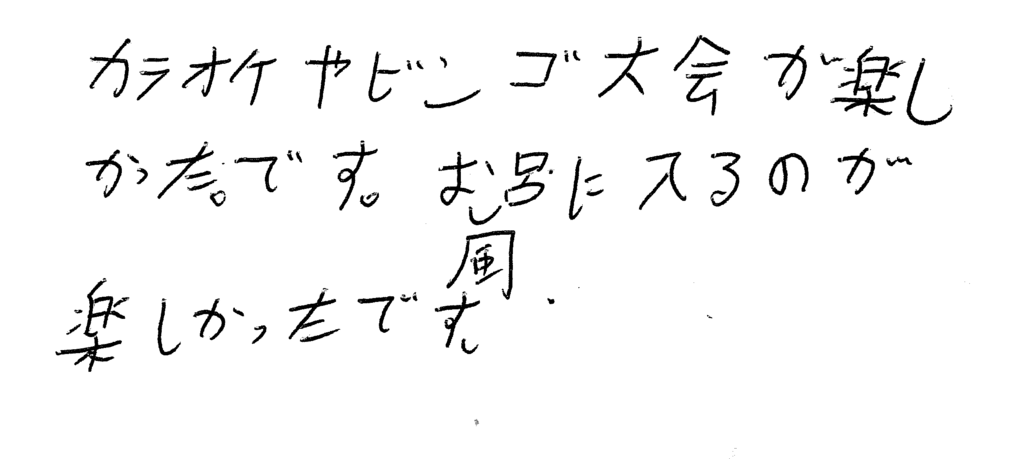 カラオケやビンゴ大会が楽し
かった。です。お風呂に入るのが
楽しかったです。